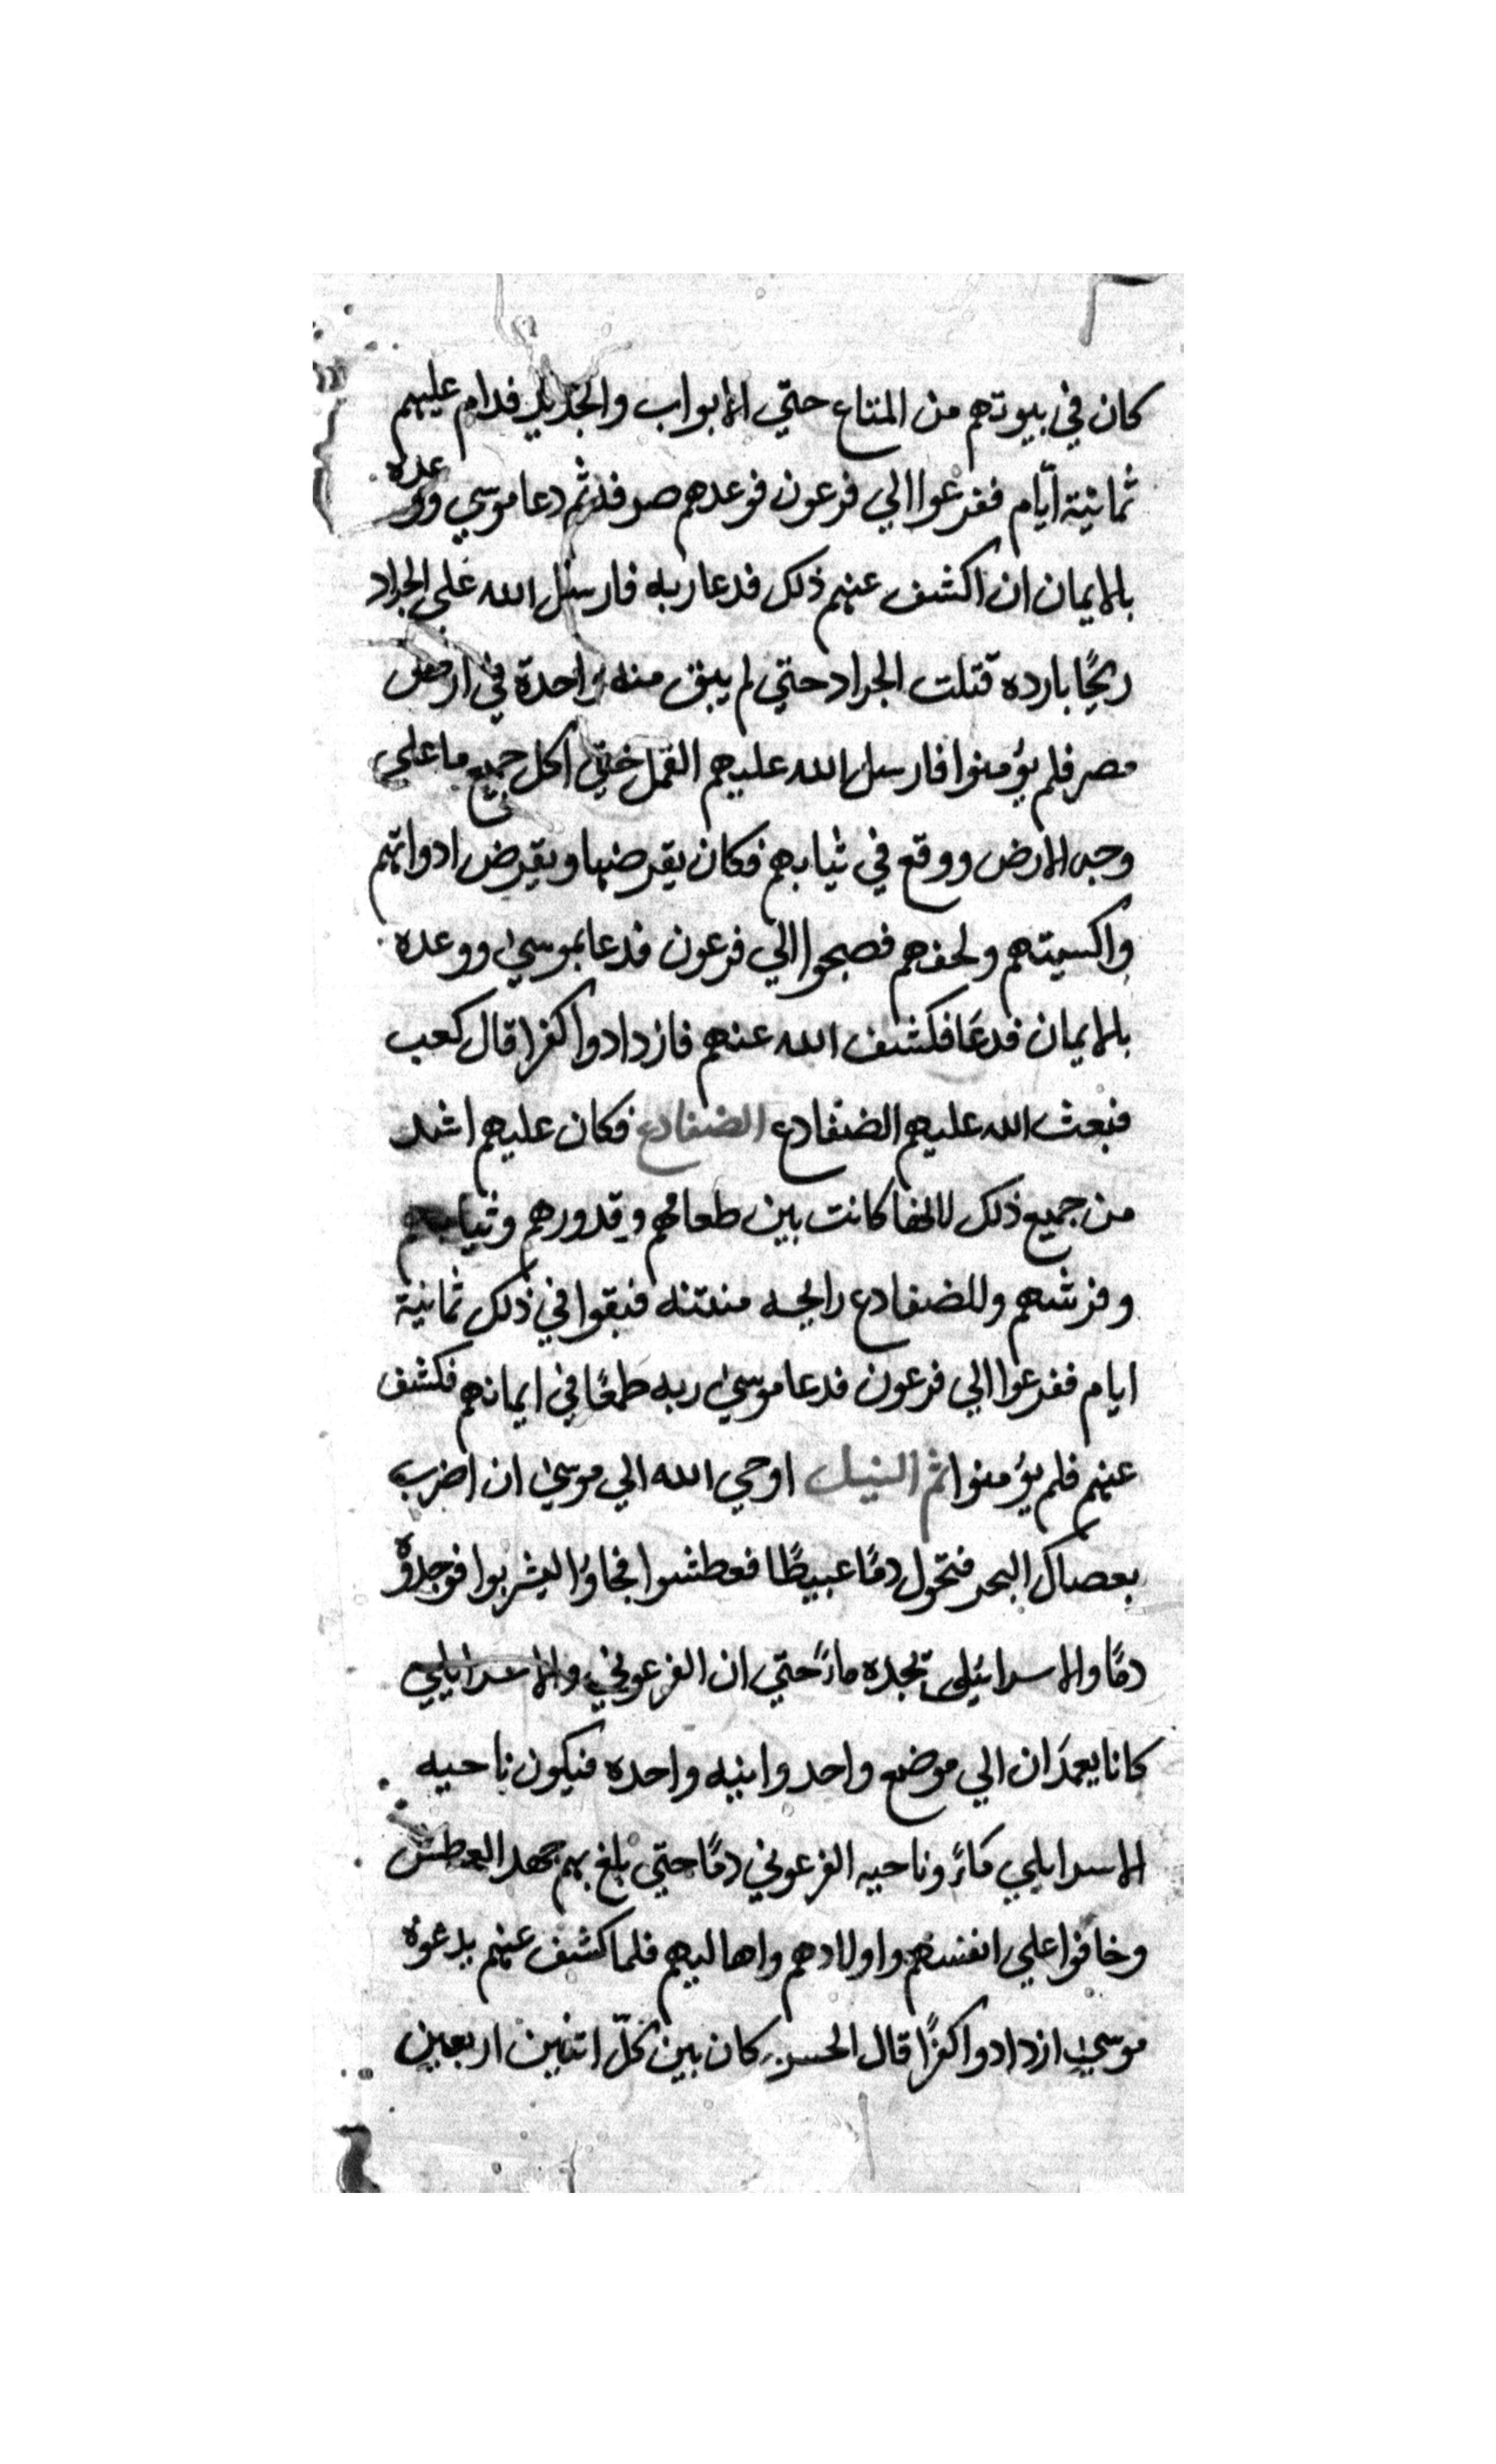 كان في بيوتهم من المتاع حتي الابواب والحديد فدام عليهم
ثمانية ايّام ففزعوا الي فرعون فوعدهم صرفه ثم دعا موسي ووعده
بالايمان ان اكشف عنهم ذلك فدعا ربه فارسل الله علي الجراد
ريحًا بارده قتلت الجراد حتي لم يبق منه واحدة في ارض
مصر فلم يؤمنوا فارسل الله عليهم القمل حتي اكل جميع ما علي
وجه الارض ووقع في ثيابهم فكان يقرضها ويقرض ادواتهم
واكسيتهم ولحفهم فصبحوا الي فرعون فدعا بموسي ووعده
بالايمان فدعا فكشف الله عنهم فازدادوا كفرا قال كعب
فبعث الله عليهم الضفادع الضفادع فكان عليهم اشد
من جميع ذلك لانها كانت بين طعامهم وقدورهم وثيابهم
وفرشهم وللضفادع رايحه منتنه فبقوا في ذلك ثمانية
ايام ففزعوا الي فرعون فدعا موسي ربه طمعًا في ايمانهم فكشف
عنهم فلم يؤمنوا ثم النيل اوحي الله الي موسي ان اضرب
بعصاك البحر فتحول دمًا عبيطًا فعطشوا فجاؤا ليشربوا فوجدوه
دمًا والاسرائيلي تجده ماءً حتي ان الفرعوني والاسرايلي
كانا يعمدان الي موضع واحد وانيه واحده فيكون ناحيه
الاسرايلي ماءً وناحيه الفرعوني دمًا حتي بلغ بهم جهد العطش
وخافوا علي انفسهم واولادهم واهاليهم فلما كشف عنهم بدعوة
موسي ازدادوا كفرًا قال الحسن كان بين كلّ اثنين اربعين